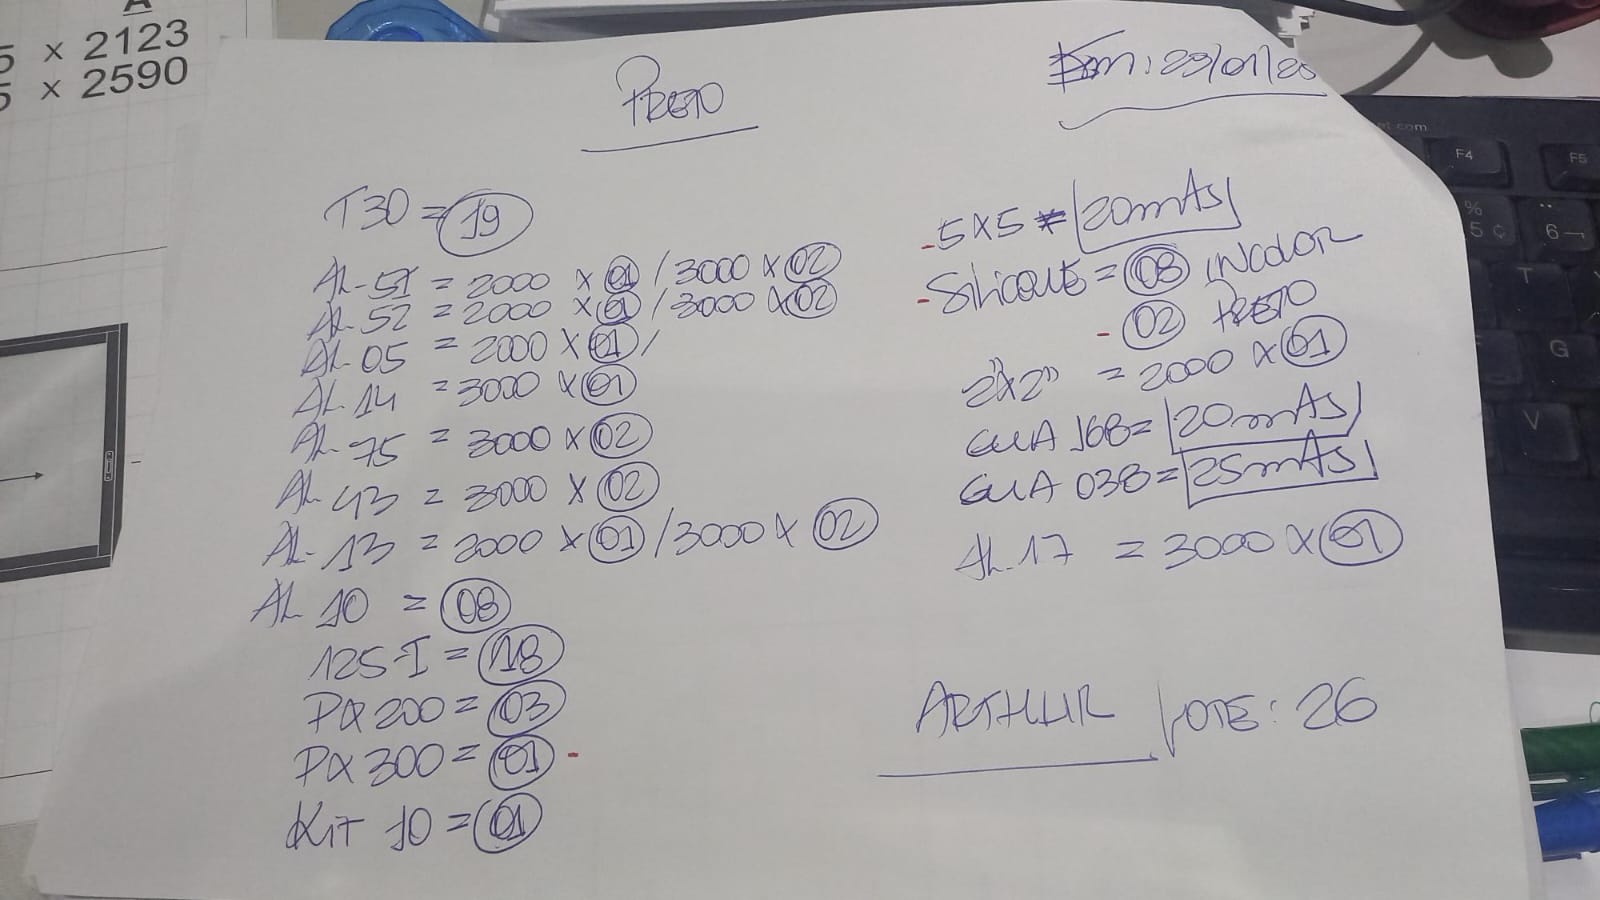 A
5 x 2123
5 x 2590
PRETO
Em: 29/01/26
T30 = 19
AL-51 = 2000 x 01 / 3000 x 02
AL-52 = 2000 x 01 / 3000 x 02
AL-05 = 2000 x 01 /
AL-14 = 3000 x 01
AL-75 = 3000 x 02
AL-43 = 3000 x 02
AL-13 = 2000 x 01 / 3000 x 02
AL 10 = 08
125-I = 18
PQ 200 = 03
PQ 300 = 01 -
Kit 10 = 01
- 5x5 = 20mts
- Silicone = 08 INCOLOR
- 02 PRETO
2"x2" = 2000 x 01
GUA 168 = 20mts
GUA 038 = 25mts
AL-17 = 3000 x 01
ARTHUR LOTE: 26
F4
F5
% 5 ¢
6 ¬
T
G
V